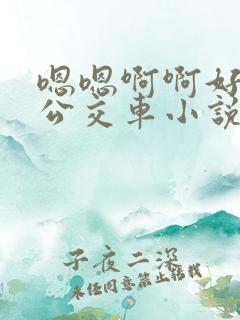 嗯嗯啊啊好
公交车小说
子夜二深
未经同意禁止转载